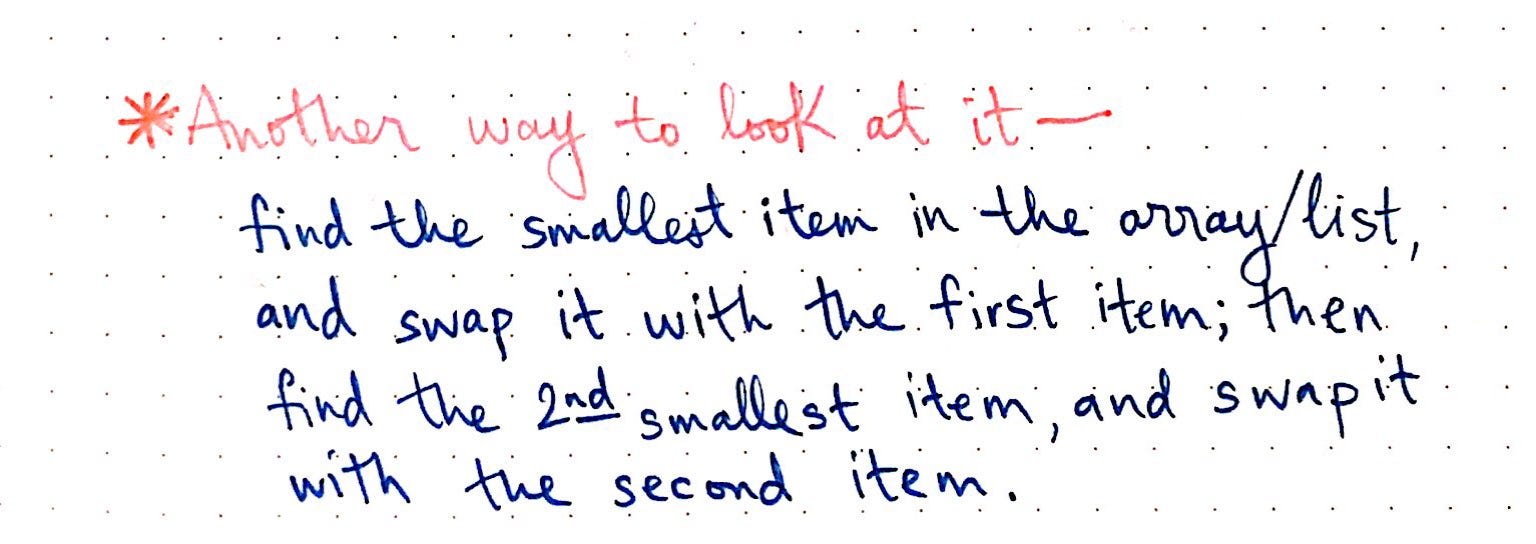 *Another way to look at it—
find the smallest item in the array/list,
and swap it with the first item; then
find the 2nd smallest item, and swap it
with the second item.